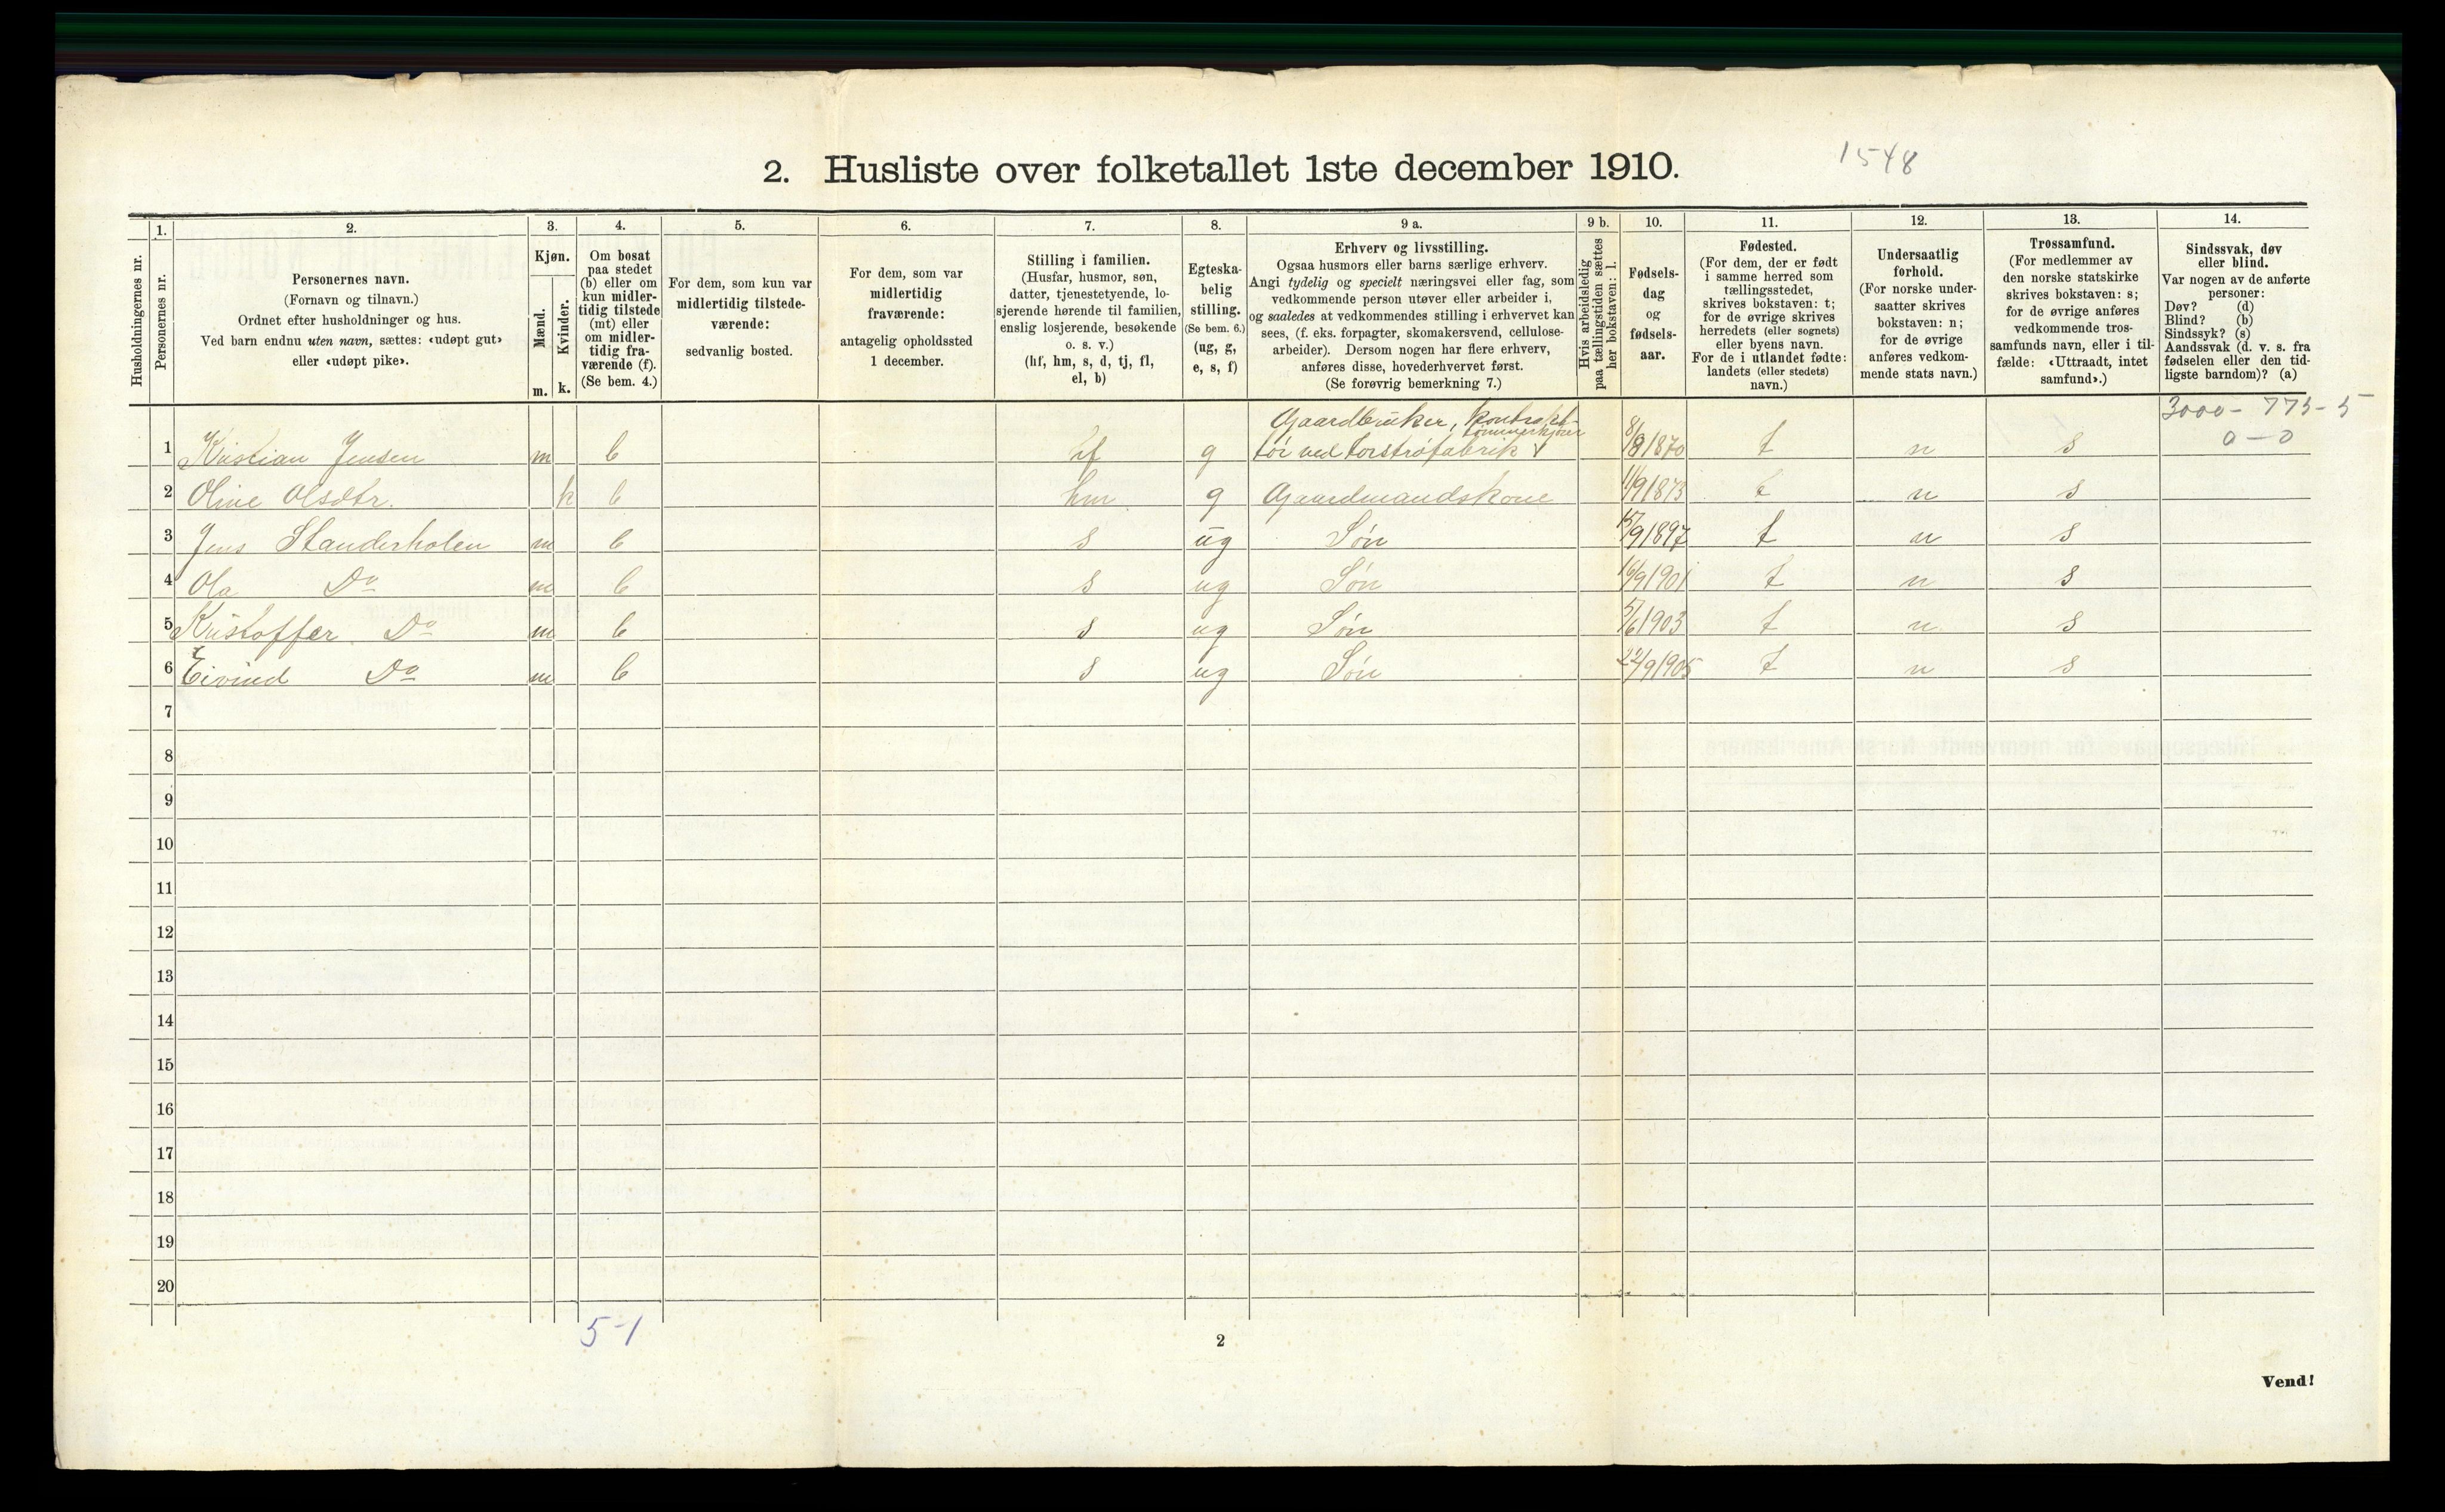 2. Husliste over folketallet 1ste december 1910.
1548
Husholdningernes nr.
1. Personernes nr.
2. Personernes navn.
(Fornavn og tilnavn.)
Ordnet efter husholdninger og hus.
Ved barn endnu uten navn, sættes: «udøpt gut»
eller «udøpt pike».
3. Kjøn.
Mænd. m.
Kvinder. k.
4. Om bosat
paa stedet
(b) eller om
kun midler-
tidig tilstede
(mt) eller
om midler-
tidig fra-
værende (f).
(Se bem. 4.)
5. For dem, som kun var
midlertidig tilstede-
værende:
sedvanlig bosted.
6. For dem, som var
midlertidig
fraværende:
antagelig opholdssted
1 december.
7. Stilling i familien.
(Husfar, husmor, søn,
datter, tjenestetyende, lo-
sjerende hørende til familien,
enslig losjerende, besøkende
o. s. v.)
(hf, hm, s, d, tj, fl,
el, b)
8. Egteska-
belig
stilling.
(Se bem. 6.)
(ug, g,
e, s, f)
9 a. Erhverv og livsstilling.
Ogsaa husmors eller barns særlige erhverv.
Angi tydelig og specielt næringsvei eller fag, som
vedkommende person utøver eller arbeider i,
og saaledes at vedkommendes stilling i erhvervet kan
sees, (f. eks. forpagter, skomakersvend, cellulose-
arbeider). Dersom nogen har flere erhverv,
anføres disse, hovederhvervet først.
(Se forøvrig bemerkning 7.)
9 b. Hvis arbeidsledig
paa tællingstiden sættes
her bokstaven: l.
10. Fødsels-
dag
og
fødsels-
aar.
11. Fødested.
(For dem, der er født
i samme herred som
tællingsstedet,
skrives bokstaven: t;
for de øvrige skrives
herredets (eller sognets)
eller byens navn.
For de i utlandet fødte:
landets (eller stedets)
navn.)
12. Undersaatlig
forhold.
(For norske under-
saatter skrives
bokstaven: n;
for de øvrige
anføres vedkom-
mende stats navn.)
13. Trossamfund.
(For medlemmer av
den norske statskirke
skrives bokstaven: s;
for de øvrige anføres
vedkommende tros-
samfunds navn, eller i til-
fælde: «Uttraadt, intet
samfund».)
14. Sindssvak, døv
eller blind.
Var nogen av de anførte
personer:
Døv? (d)
Blind? (b)
Sindssyk? (s)
Aandssvak (d. v. s. fra
fødselen eller den tid-
ligste barndom)? (a)
3000 - 775 - 5
0 - 0
Gaardbruker, kontrak-
tømmerkjører
1 Kristian Jensen m b hf g tør ved torstrøfabrik & 8/8 1870 t n s
2 Oline Olsdtr. k b hm g Gaardmandskone 11/9 1873 t n s
3 Jens Standerholen m b s ug Søn 15/9 1897 t n s
4 Ola Do m b s ug Søn 16/9 1901 t n s
5 Kristoffer Do m b s ug Søn 5/6 1903 t n s
6 Eivind Do m b s ug Søn 22/9 1905 t n s
7
8
9
10
11
12
13
14
15
16
17
18
19
20
5-1
2
Vend!